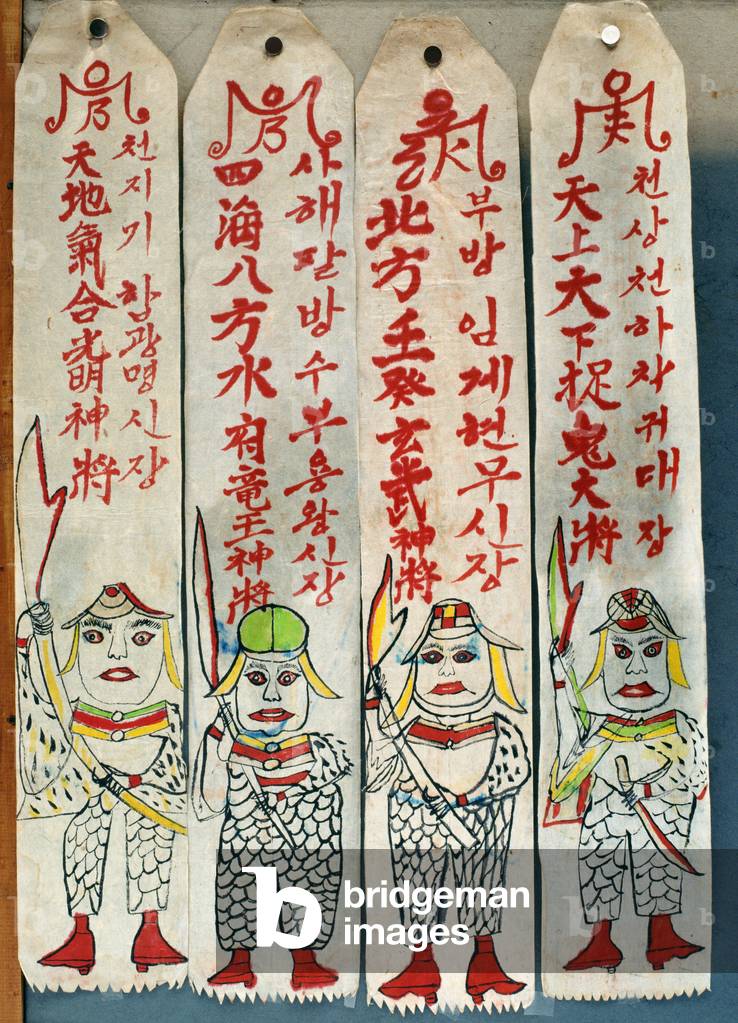 天地氣合光明神將
천지기 합광명신장
四海八方水府竜王神將
사해팔방수부용왕신장
北方壬癸玄武神將
부방 임게현무신장
天上天下捉鬼大將
천상천하차귀대장
b bridgeman
images